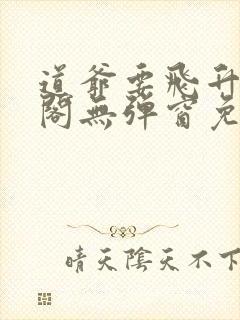 道爺要飛升
閣無彈窗免
晴天陰天不下